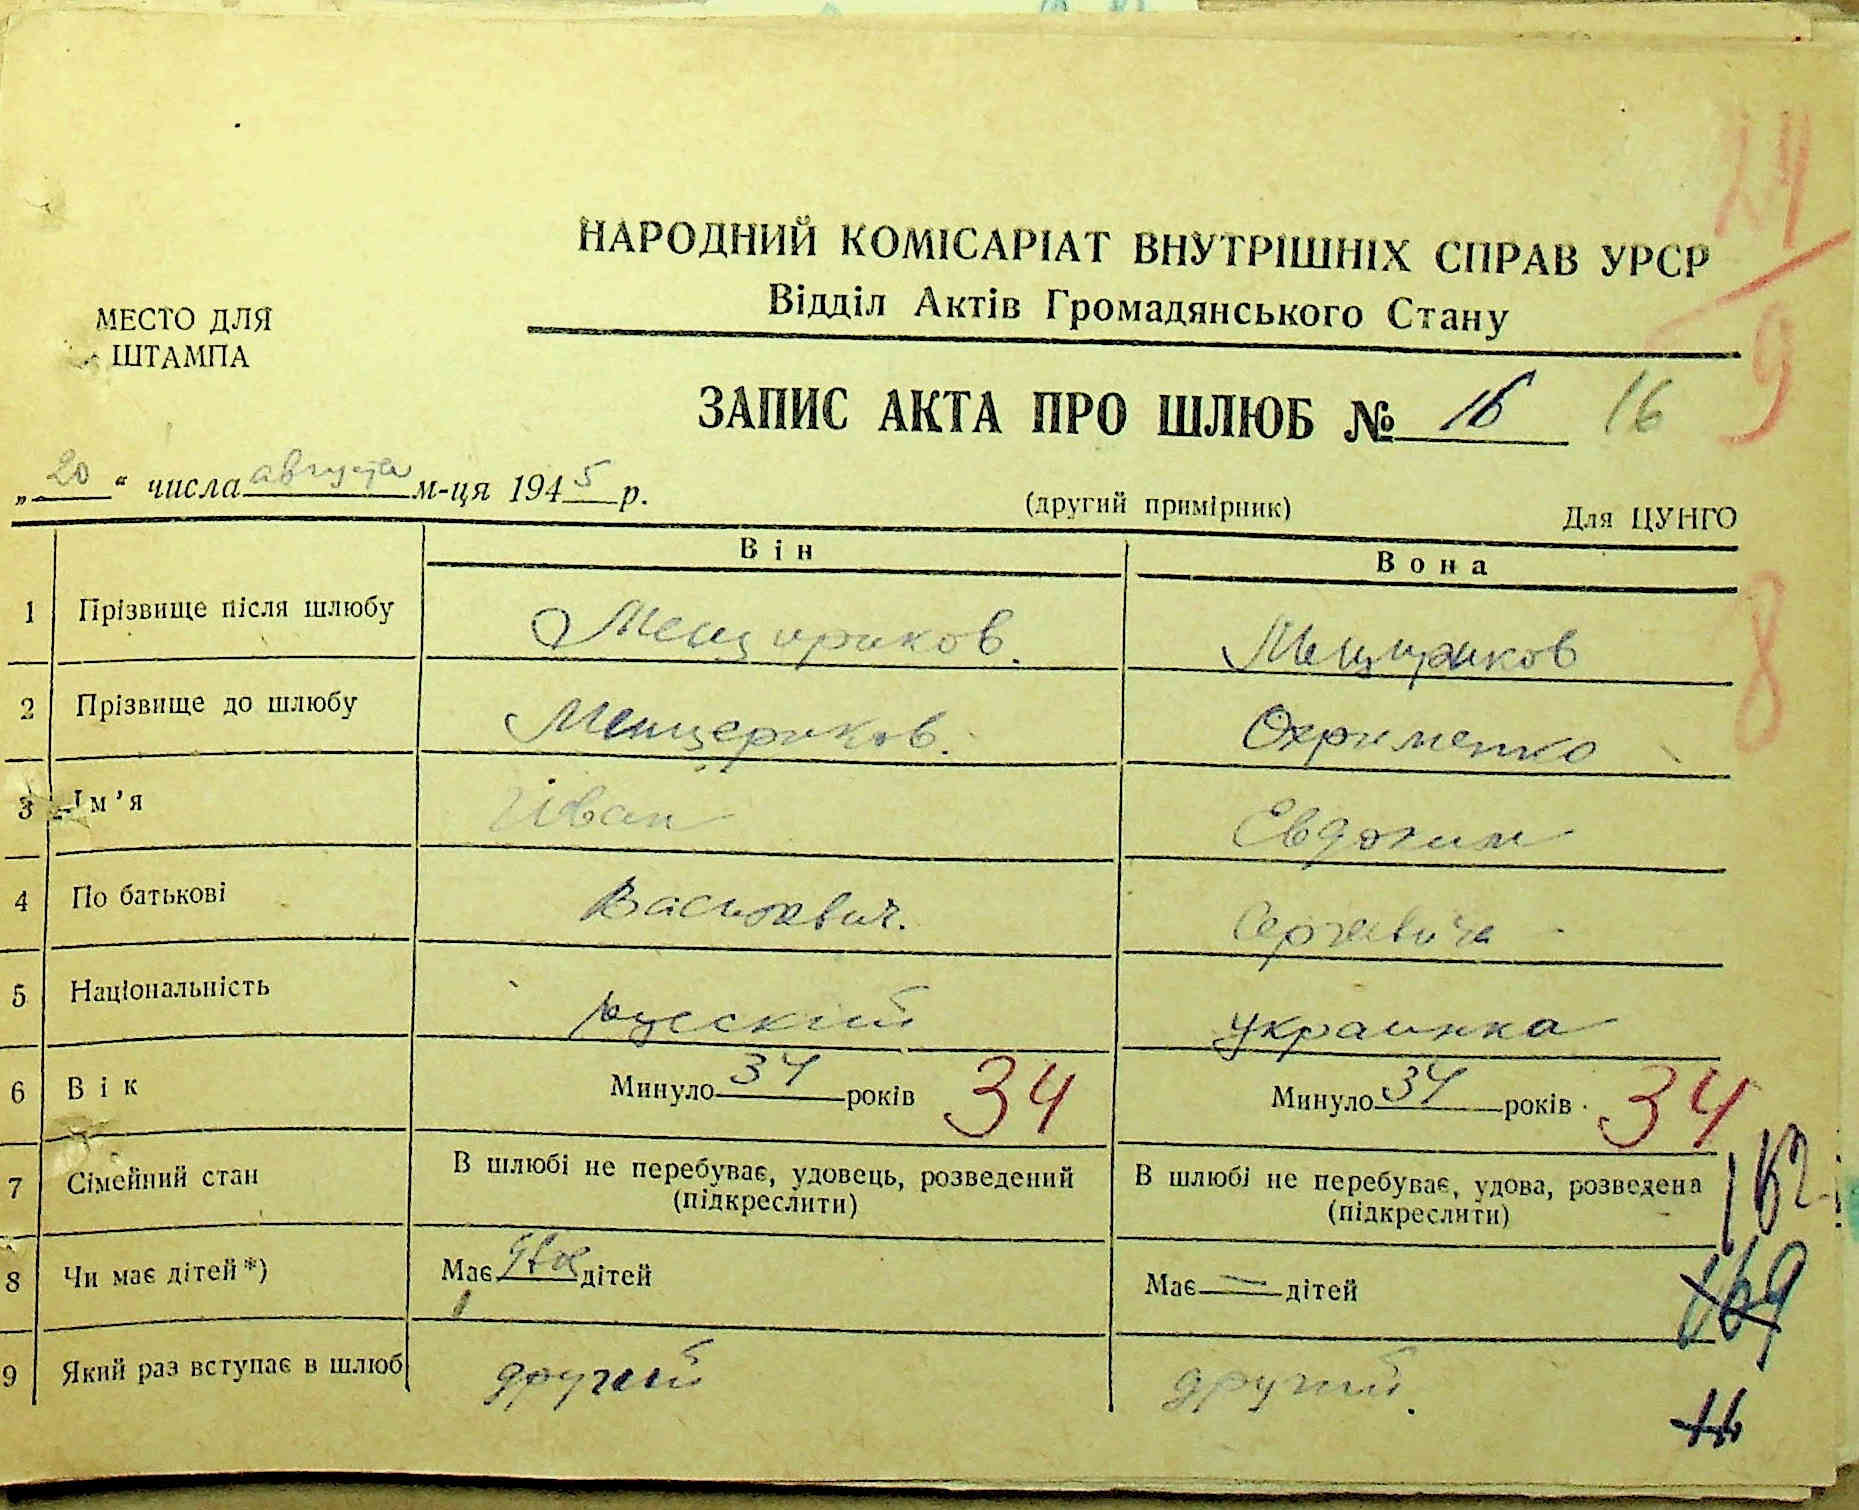 24
9
НАРОДНИЙ КОМІСАРІАТ ВНУТРІШНІХ СПРАВ УРСР
Відділ Актів Громадянського Стану
МЕСТО ДЛЯ
ШТАМПА
ЗАПИС АКТА ПРО ШЛЮБ № 16 16
„20“ числа августа м-ця 1945 р.
(другий примірник) Для ЦУНГО
Він Вона
8
1 Прізвище після шлюбу Мещириков. Мещириков
2 Прізвище до шлюбу Мещериков. Охрименко
3 Ім’я Иван
4 По батькові Васильевич. Сергеевича
5 Національність русский украинка
6 Вік Минуло 34 років 34 Минуло 34 років 34
7 Сімейний стан В шлюбі не перебуває, удовець, розведений (підкреслити) В шлюбі не перебуває, удова, розведена (підкреслити)
162
8 Чи має дітей*) Має дітей Має — дітей
169
9 Який раз вступає в шлюб другий другий.
16